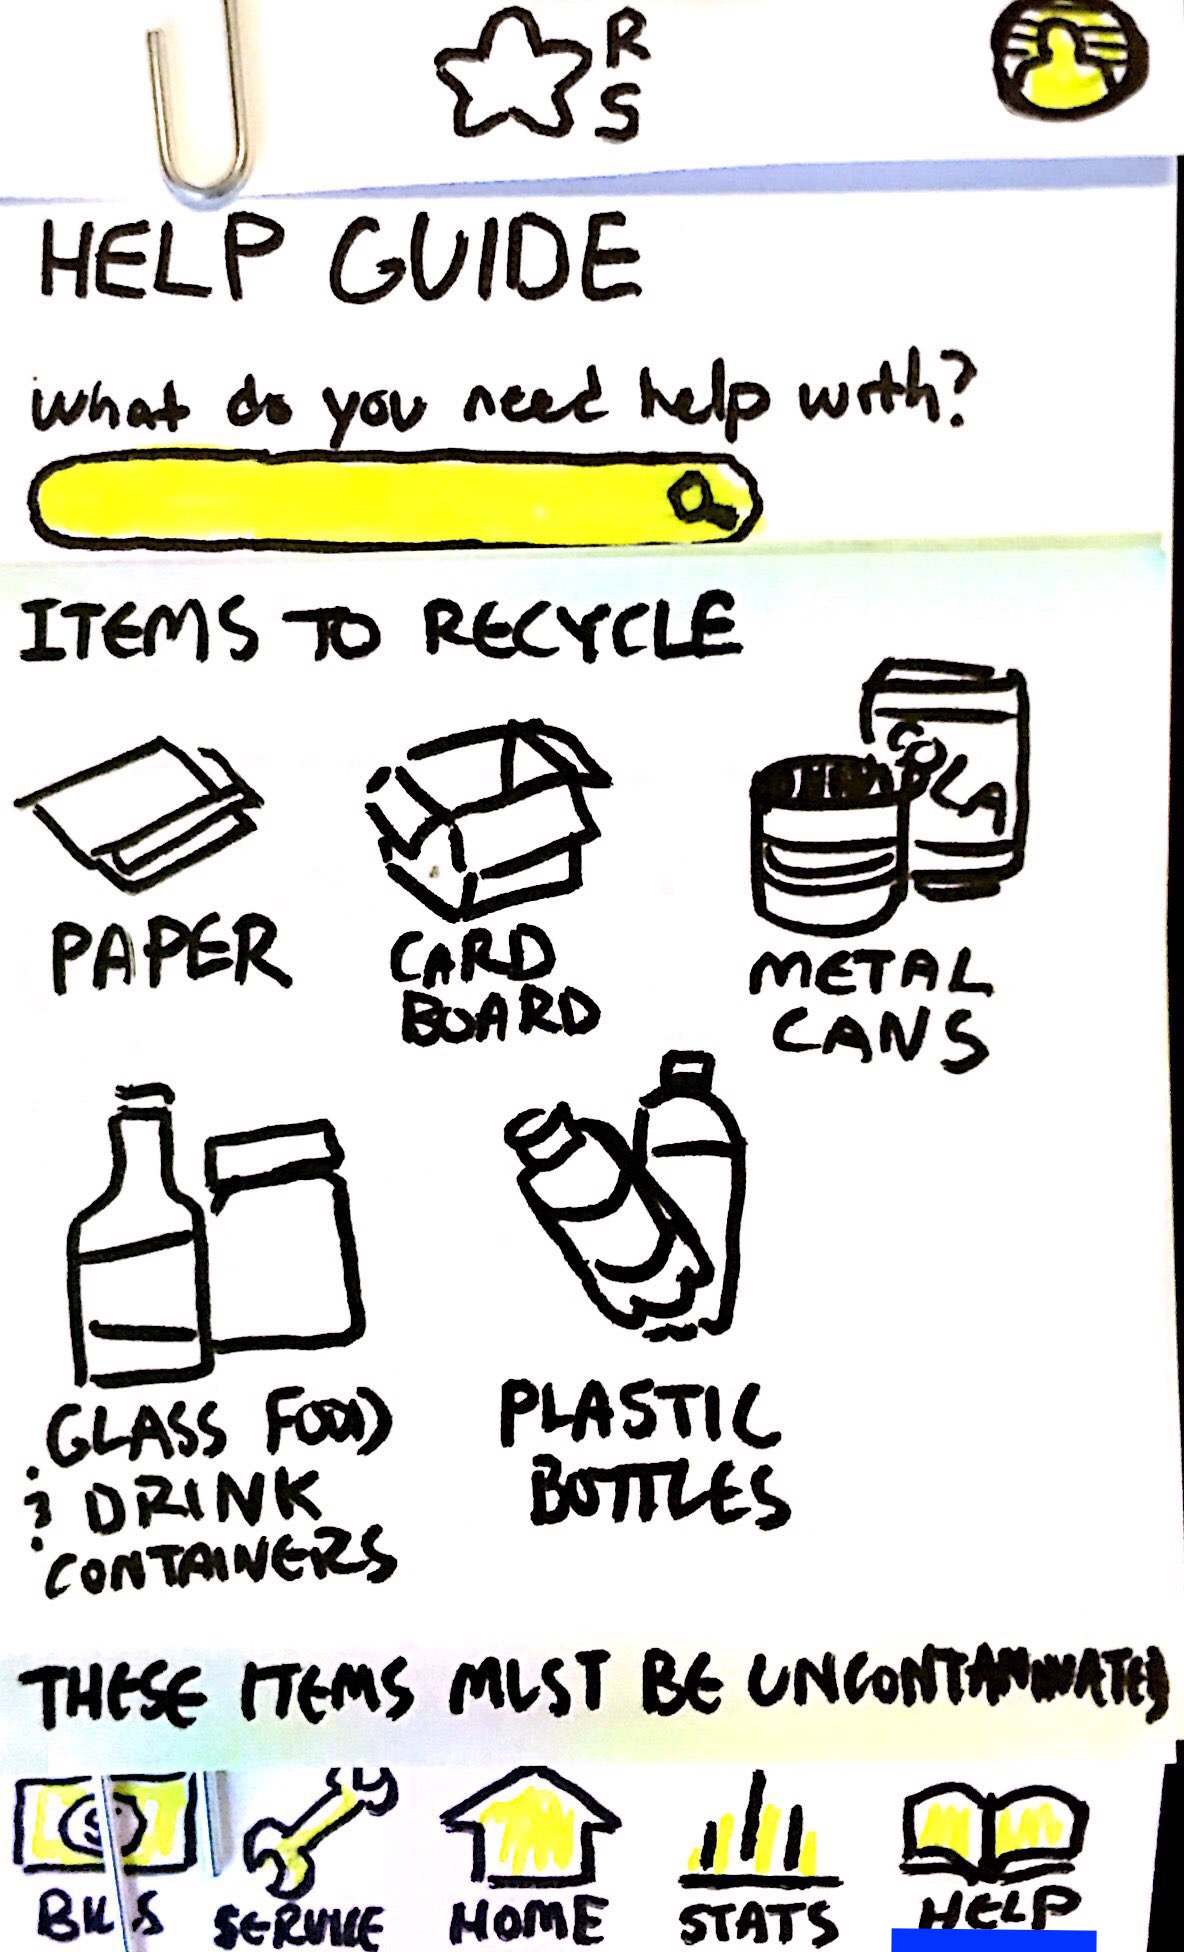 R
S
HELP GUIDE
what do you need help with?
ITEMS TO RECYCLE
COLA
PAPER
CARD
BOARD
METAL
CANS
GLASS FOOD
& DRINK
CONTAINERS
PLASTIC
BOTTLES
THESE ITEMS MUST BE UNCONTAMINATED
$
BILLS SERVICE HOME STATS HELP